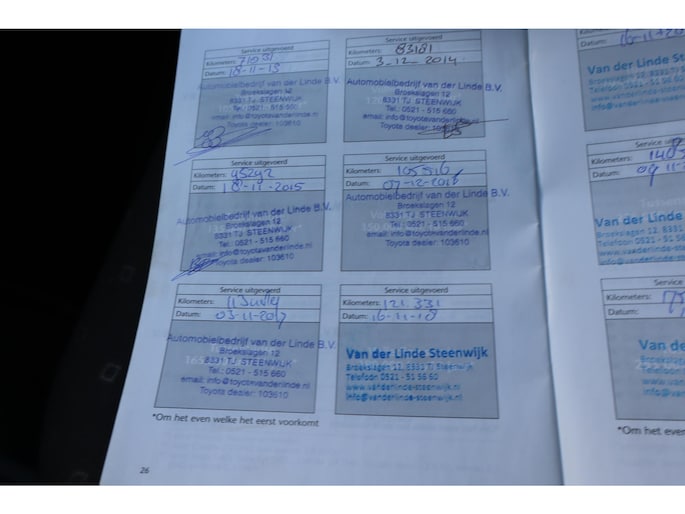 Service uitgevoerd
Kilometers:
Datum: 18-11-13
Automobielbedrijf van der Linde B.V.
Broekslagen 12
8331 TJ STEENWIJK
Tel.: 0521 - 515 660
email: info@toyotavanderlinde.nl
Toyota dealer: 103610
Service uitgevoerd
Kilometers: 83181
Datum: 3-12-2014
Automobielbedrijf van der Linde B.V.
Broekslagen 12
8331 TJ STEENWIJK
Tel.: 0521 - 515 660
email: info@toyotavanderlinde.nl
Toyota dealer:
Service uitgevoerd
Kilometers: 95292
Datum: 18-11-2015
Automobielbedrijf van der Linde B.V.
Broekslagen 12
8331 TJ STEENWIJK
Tel.: 0521 - 515 660
email: info@toyotavanderlinde.nl
Toyota dealer: 103610
Service uitgevoerd
Kilometers: 105516
Datum: 07-12-2016
Automobielbedrijf van der Linde B.V.
Broekslagen 12
8331 TJ STEENWIJK
Tel.: 0521 - 515 660
email: info@toyotavanderlinde.nl
Toyota dealer: 103610
Service uitgevoerd
Kilometers:
Datum: 03-11-2017
Automobielbedrijf van der Linde B.V.
Broekslagen 12
8331 TJ STEENWIJK
Tel.: 0521 - 515 660
email: info@toyotavanderlinde.nl
Toyota dealer: 103610
Service uitgevoerd
Kilometers: 121.331
Datum: 16-11-18
Van der Linde Steenwijk
Broekslagen 12, 8331 TJ Steenwijk
Telefoon 0521 - 51 56 60
www.vanderlinde-steenwijk.nl
info@vanderlinde-steenwijk.nl
*Om het even welke het eerst voorkomt
26
Kilometers:
Datum:
Van der Linde
Broekslagen 12, 8331
Telefoon 0521 - 51
www.vanderlinde-st
info@vanderlinde-st
Service
Kilometers:
Datum: 09-11-
Van der Linde
Broekslagen 12, 8331
Telefoon 0521 - 51
www.vanderlinde-st
info@vanderlinde-st
Service
Kilometers:
Datum:
Van de
Telefo
www.van
info@va
*Om het even